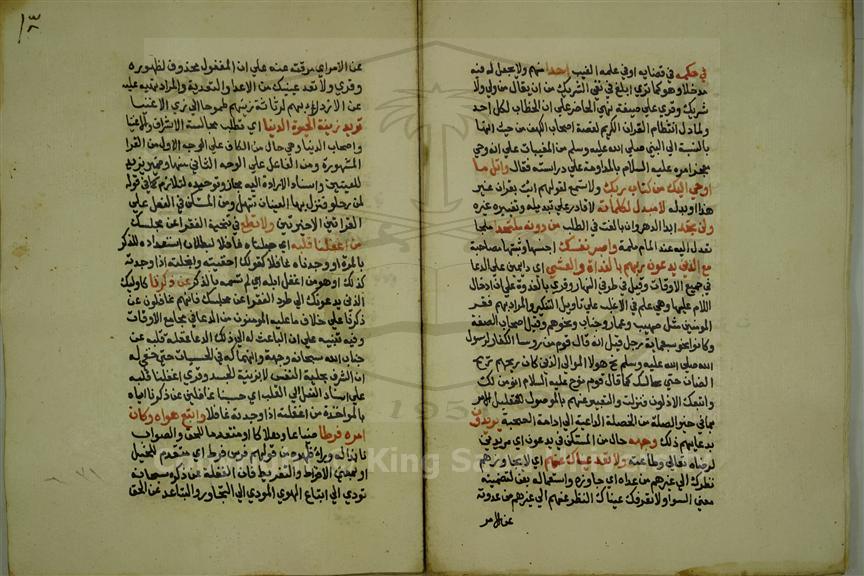 في حكمه في قضايه او في علمه الغيب احدا منهم ولا يجعل له فيه
مدخلا وهو كما ترى ابلغ في نفي الشريك من ان يقال من ولي ولا
شريك وقري على صيغة نهي الحاضر على ان الخطاب لكل احد
ولما دل انتظام القران الكريم لقصة اصحاب الكهف من حيث انها
بالنسبة الى النبي صلى الله عليه وسلم من المغيبات على انه وحي
معجز امره عليه السلام بالمداومة على دراسته فقال واتل ما
اوحي اليك من كتاب ربك ولا تسمع لقولهم ائت بقران غير
هذا او بدله لا مبدل لكلماته لا قادر على تبديله وتغييره غيره
ولن تجد ابدا الدهر وان بالغت في الطلب من دونه ملتحدا ملجا
تعدل اليه عند المام ملمة واصبر نفسك احبسها وثبتها مصاحبة
مع الذين يدعون ربهم بالغداة والعشي اي دايبين على الدعا
في جميع الاوقات وقيل في طرفي النهار وقري بالغدوة على ان ادخال
اللام عليها وهي علم في الاغلب على تاويل التنكير والمراد بهم فقرا
المومنين مثل صهيب وعمار وخباب ونحوهم وقيل اصحاب الصفة
وكانوا نحو سبعماية رجل قيل انه قال قوم من روسا الكفار لرسول
الله صلى الله عليه وسلم نح هولا الموالي الذين كان ريحهم ريح
الضان حتى نجالسك كما قال قوم نوح عليه السلام انومن لك
واتبعك الارذلون فنزلت والتعبير عنهم بالموصول لتعليل الامر
بما في حيز الصلة من الخصلة الداعية الى ادامة الصحبة يريدون
بدعايهم ذلك وجهه حال من المستكن في يدعون اي مريدين
لرضاه تعالى وطاعته ولا تعد عيناك عنهم اي لا يجاوزهم
نظرك الى غيرهم من عداه اي جاوزه واستعماله بعن لتضمينه
معنى النبو او لا تصرف عيناك النظر عنهم الى غيرهم من عدوته
عن الامر
عن الامر اي صرفته عنه على ان المفعول محذوف لظهوره
وقري ولا تعد عينيك من الاعدا والتعدية والمراد نهيه عليه
عن الازدراء بهم لرثاثة زيهم طموحا الى زي الاغنيا
تريد زينة الحيوة الدنيا اي تطلب مجالسة الاشراف والاغنيا
واصحاب الدنيا وهي حال من الكاف على الوجه الاول من القراة
المشهورة ومن الفاعل على الوجه الثاني منها وضمير تريد
للعينين واسناد الارادة اليه مجاز وتوحيده لتلازم كما في قوله
لمن زحلوقة زل بها العينان تنهل ومن المستكن في الفعل على
القراتين الاخيرتين ولا تطع في تنحية الفقرا عن مجلسك
من اغفلنا قلبه اي جعلناه غافلا لبطلان استعداده للذكر
بالمرة او وجدناه غافلا كقولك اجبنته وابخلته اذا وجدته
كذلك او هو من اغفل ابله اي لم نسمه بالذكر عن ذكرنا كاوليك
الذين يدعونك الى طرد الفقرا عن مجلسك فانهم غافلون عن
ذكرنا على خلاف ما عليه المومنون من الدعا في مجامع الاوقات
وفيه تنبيه على ان الباعث له الى ذلك الدعا غفلة قلبه عن
جناب الله سبحانه وجهته وانهماكه في الحسيات حتى خفي له
ان الشرف بحلية النفس لا بزينة الجسد وقري اغفلنا قلبه
على اسناد الفعل الى القلب اي حسبنا غافلين عن ذكرنا اياه
بالمواخذة من اغفلته اذا وجدته غافلا واتبع هواه وكان
امره فرطا ضياعا وهلاكا او متقدما للحق والصواب
نابذا له وراء ظهره من قولهم فرس فرط اي متقدم للخيل
او بمعنى الافراط والتفريط فان الغفلة عن ذكره سبحانه
تودي الى اتباع الهوى المودي الى التجاوز والتباعد عن الحق